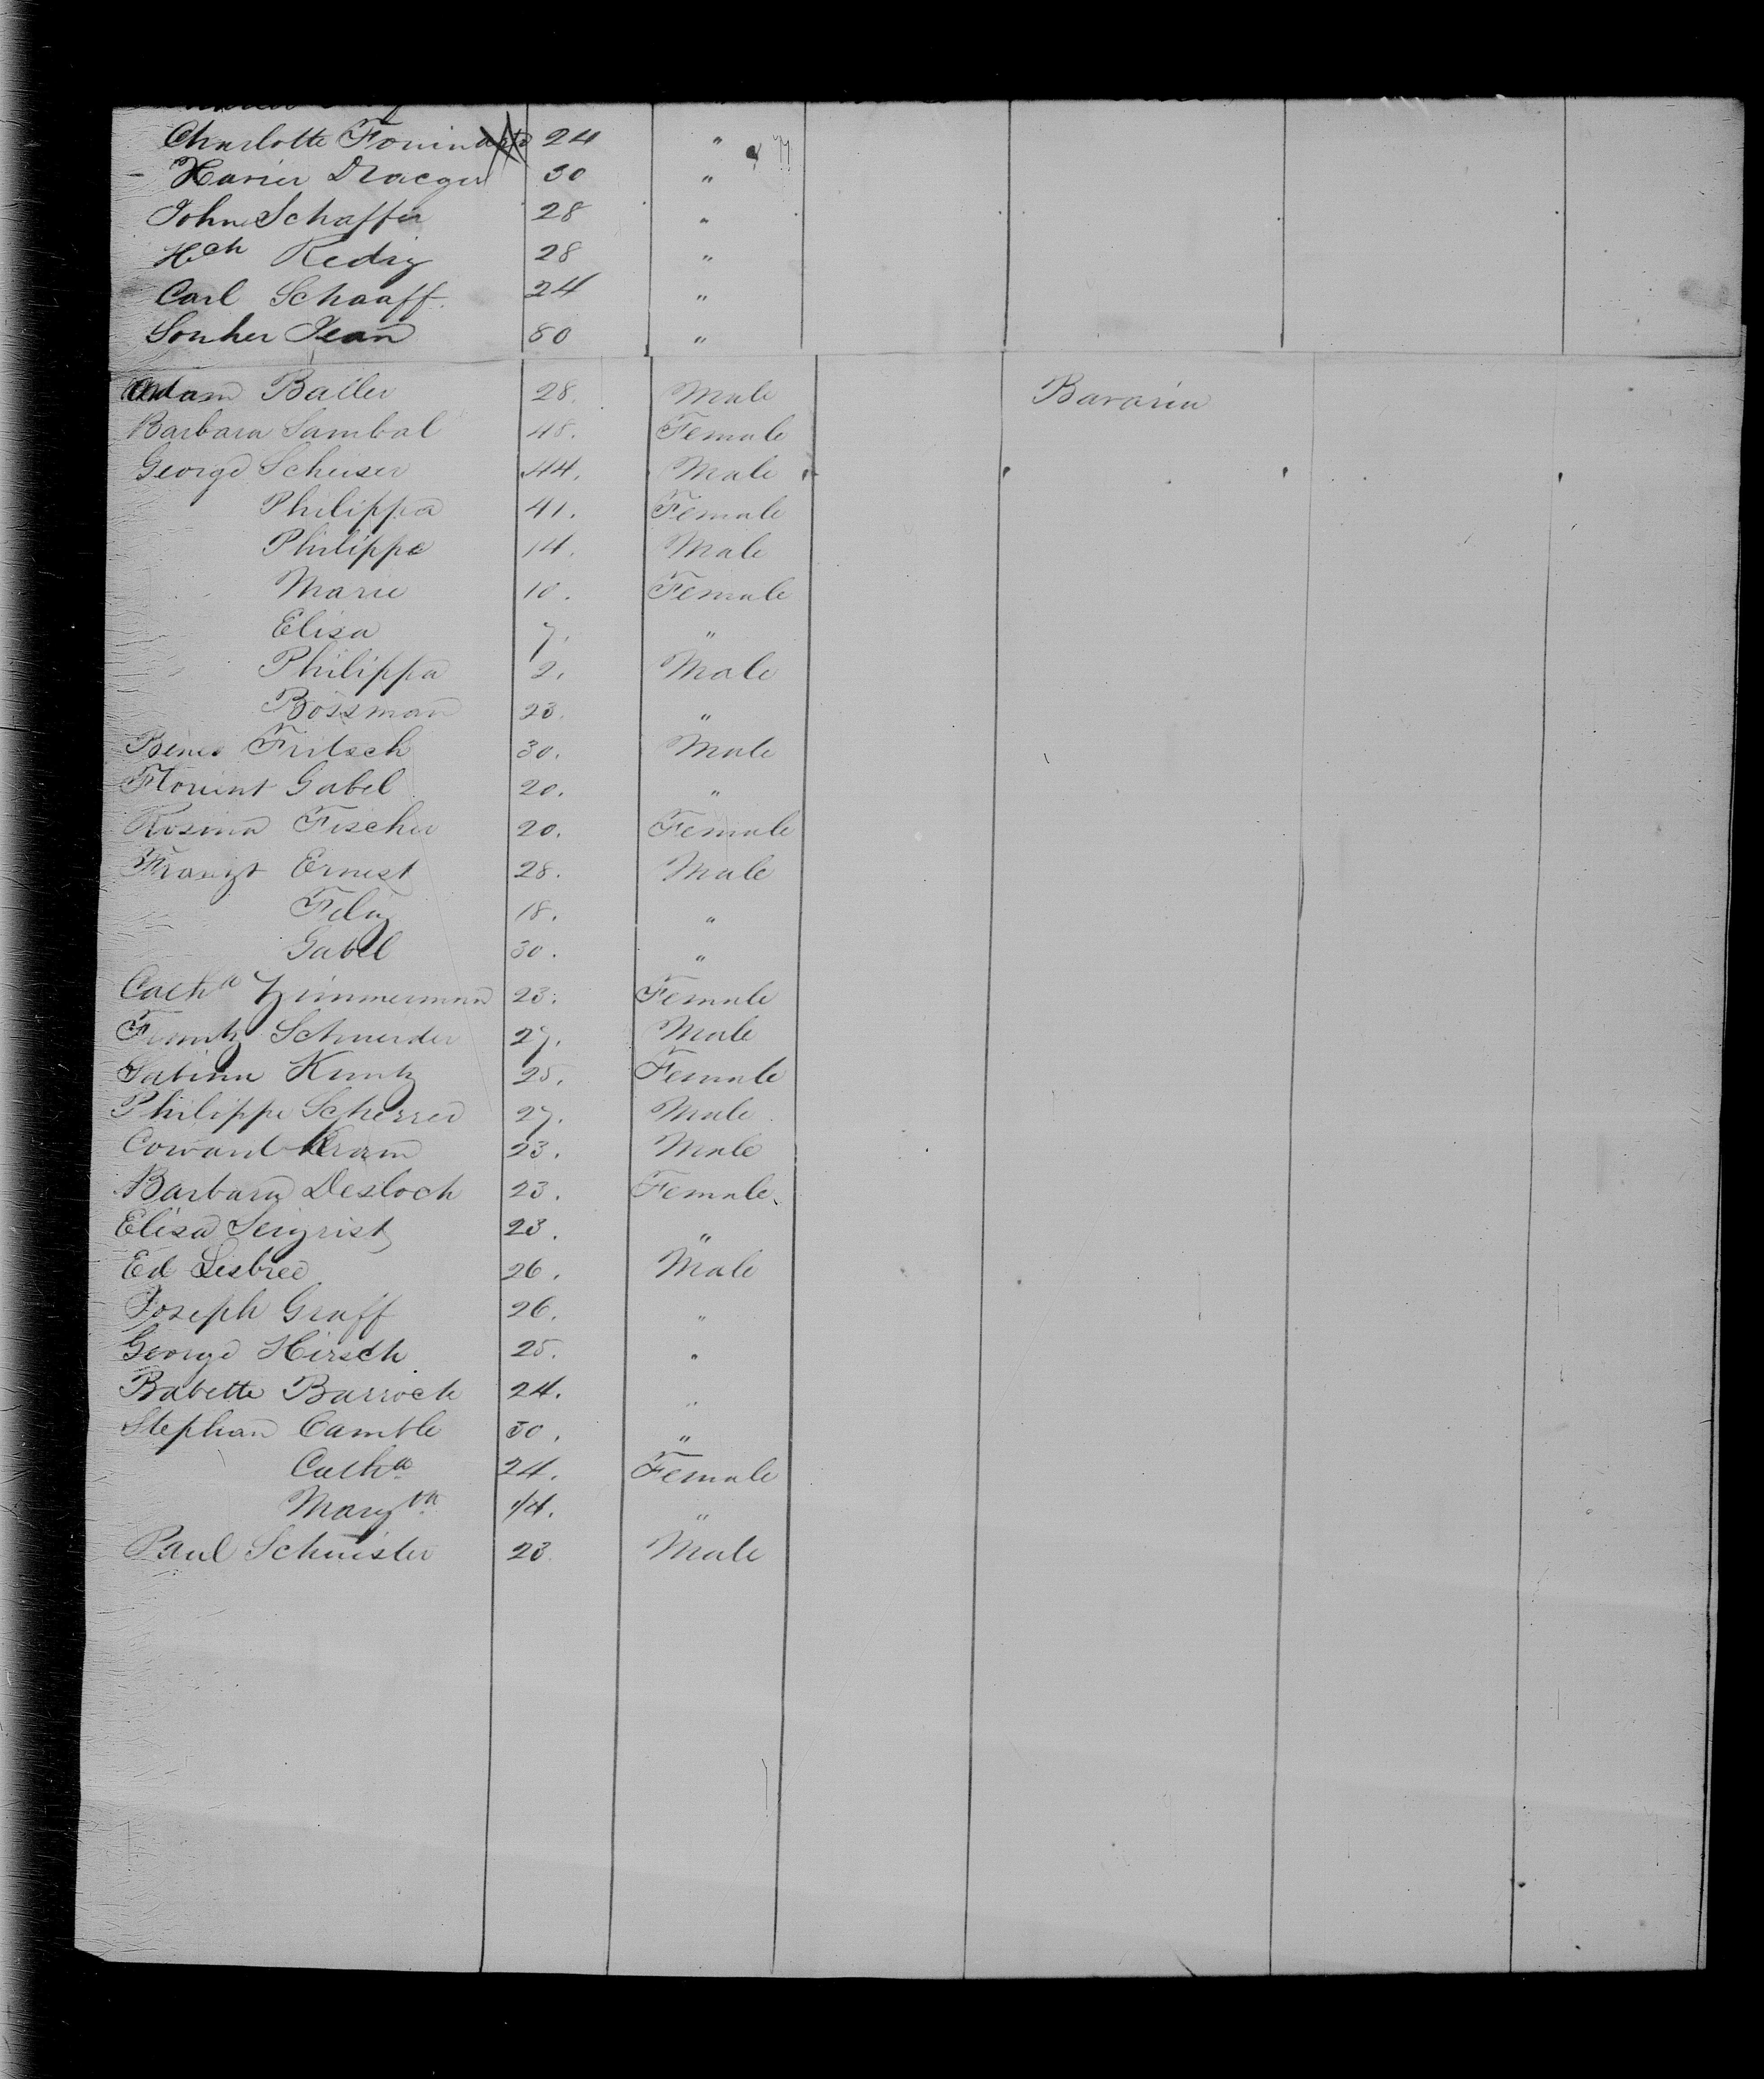 Charlotte 24 "
Xavier Draeger 30 "
John Schaffer 28 "
Hch Redig 28 "
Carl Schaaff. 24 "
Souher Jean 80 "
Adam Baller 28. Male Bavaria
Barbara Sambal 48. Female
George Scheiser 44. Male
Philippa 41. Female
Philippe 14. Male
Marie 10. Female
Elisa 7. "
Philippa 2. Male
Bossman 23. "
Fritsch 30. Male
Florient Gabel 20. "
Rosina Fischer 20. Female
Franzt Ernest 28. Male
18. "
Gabel 30. "
Catha Zimmermann 23. Female
Schneider 27. Male
Sabina Kuntz 25. Female
Philippe Scherrer 27. Male
23. Male
Barbara Desloch 23. Female
Elisa Seigrist 23. "
Ed Lesbree 26. Male
Joseph Graff 26. "
George Hirsch 25. "
Babette Barroch 24. "
Stephan Camble 30. "
Catha 24. Female
Margth 1/4. "
Paul Schuister 23. Male